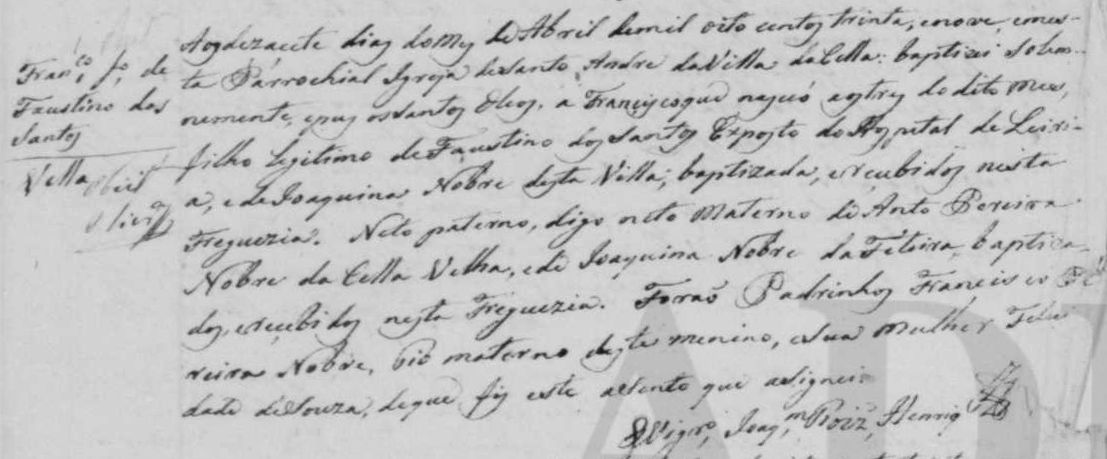 Fran.co f.o de
Faustino dos
Santos
Vella
Aos dezacete dias do Mes de Abril de mil oito centos trinta, e nove, e nes-
ta Parrochial Igreja de Santo Andre da Villa da Cella: baptizei solem-
nemente, e puz os santos Oleos, a Francisco que nasceo aos trez do dito Mes,
filho legitimo de Faustino dos Santos Exposto do Hospital de Leiri-
a, e de Joaquina Nobre desta Villa, baptizada, e recebidos nesta
Freguezia. Neto paterno, digo neto Materno de Anto Pereira
Nobre da Cella Velha, e de Joaquina Nobre da Feteira, baptiza-
dos, e recebidos nesta Freguezia. Foraõ Padrinhos Francisco Pe
reira Nobre, Tio materno deste menino, e sua Mulher Felici
dade de Souza, de que fiz este assento que asignei
O Vigr.o Joaq.m Roiz Henriq
AD